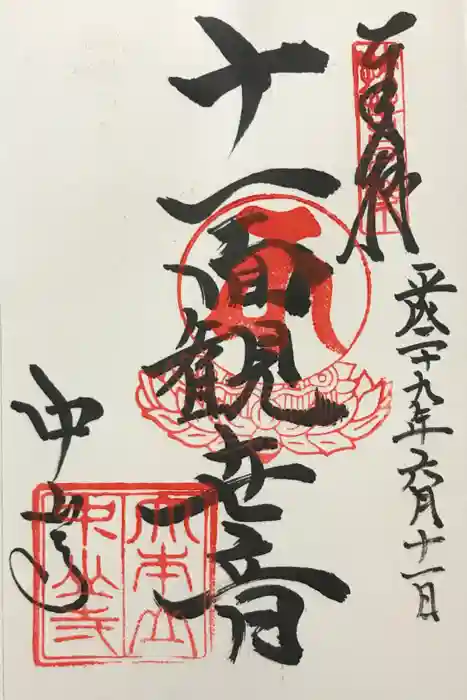 平成二十九年六月十一日
十一面観世音
中山寺
大本山
中山寺